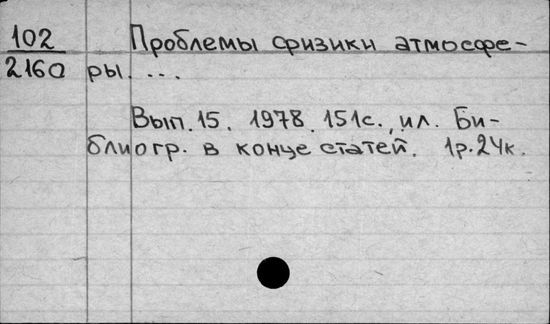 102 Проблемы физики атмосфе-
2160 ры. ...
Вып. 15. 1978. 151с., ил. Би-
блиогр. в конце статей. 1р.24к.